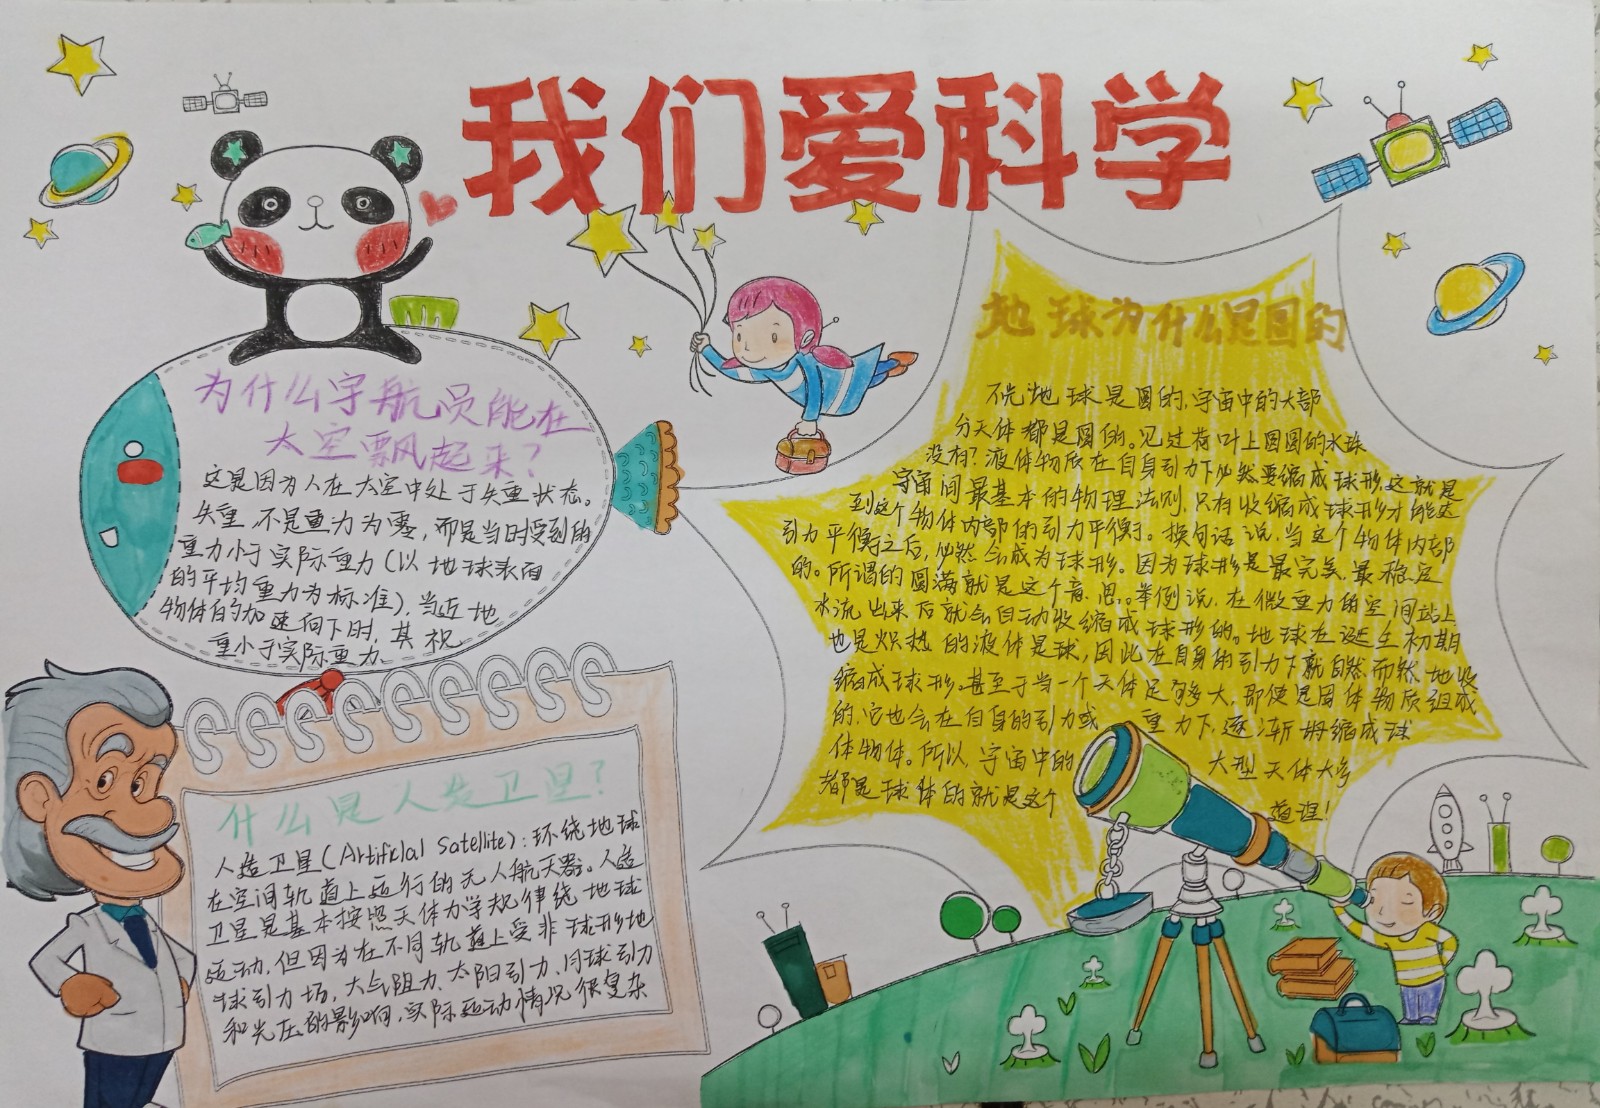 我们爱科学
为什么宇航员能在
太空飘起来？
这是因为人在太空中处于失重状态。
失重不是重力为零，而是当时受到的
重力小于实际重力（以地球表面
的平均重力为标准），当近地
物体自的加速向下时，其视
重小于实际重力
什么是人造卫星？
人造卫星（Artificial Satellite）：环绕地球
在空间轨道上运行的无人航天器。人造
卫星是基本按照天体力学规律绕地球
运动，但因为在不同轨道上受非球形地
球引力场，大气阻力、太阳引力、月球引力
和光压的影响，实际运动情况很复杂
地球为什么是圆的
不光地球是圆的，宇宙中的大部
分天体都是圆的。见过荷叶上圆圆的水珠
没有？液体物质在自身引力下必然要缩成球形，这就是
宇宙间最基本的物理法则，只有收缩成球形才能达
到这个物体内部的引力平衡。换句话说，当这个物体内部
引力平衡之后，必然会成为球形。因为球形是最完美，最稳定
的。所谓的圆满就是这个意思。举例说，在微重力的空间站上
水流出来后就会自动收缩成球形的。地球在诞生初期
也是炽热的液体星球，因此在自身的引力下就自然而然地收
缩成球形。甚至于当一个天体足够大，即使是固体物质组成
的，它也会在自身的引力或重力下，逐渐坍缩成球
体物体。所以，宇宙中的大型天体大多
都是球体的就是这个道理！